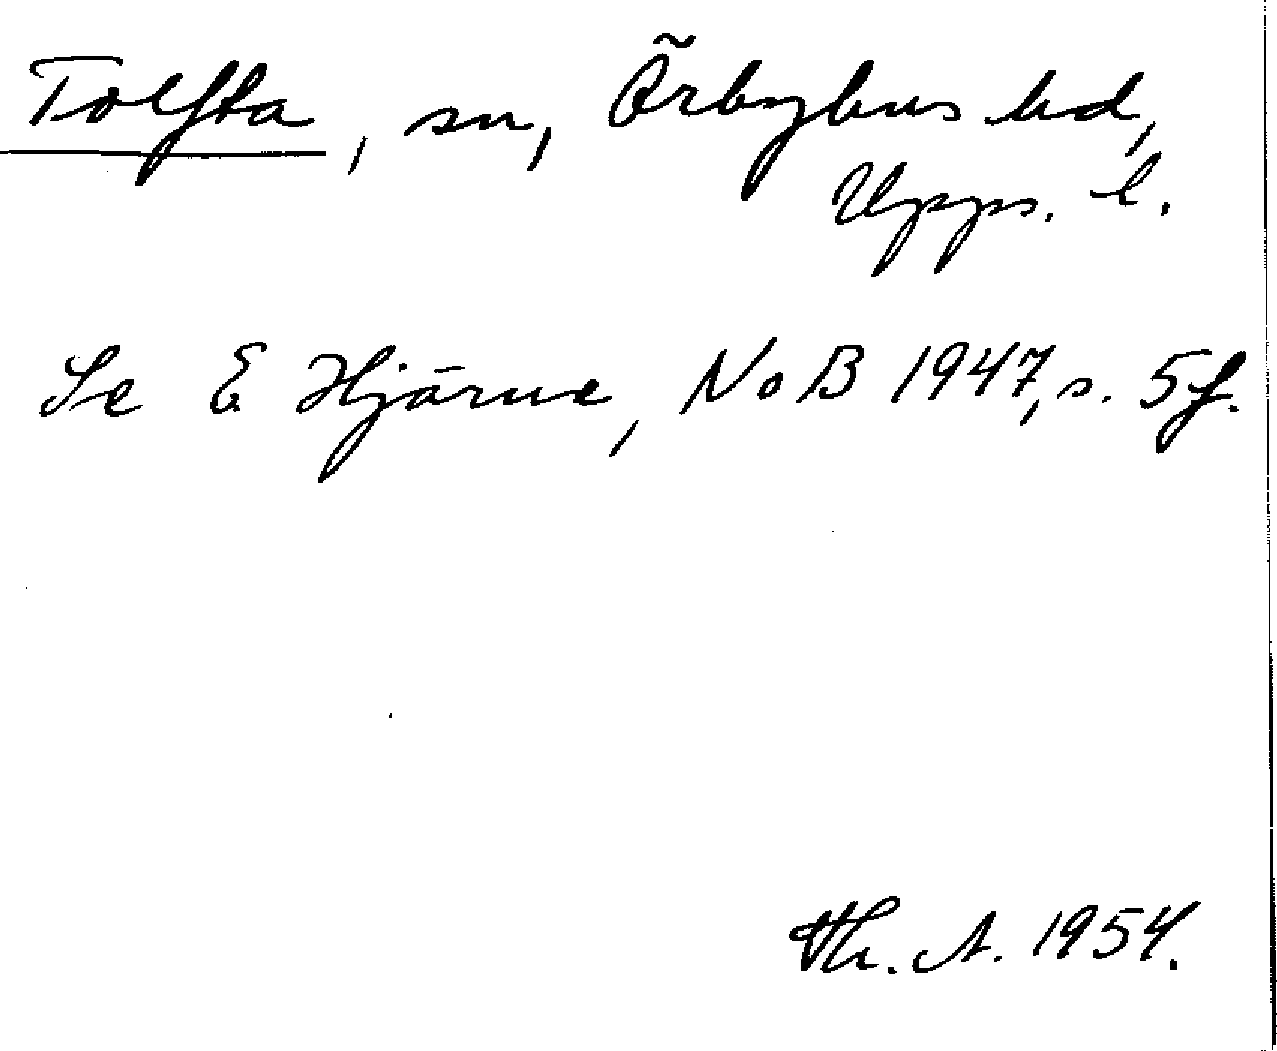 Tolfta, sn, Örbyhus hd,
Upps. l.
Se E Hjärne, NoB 1947, s. 5f.
Th. A. 1954.